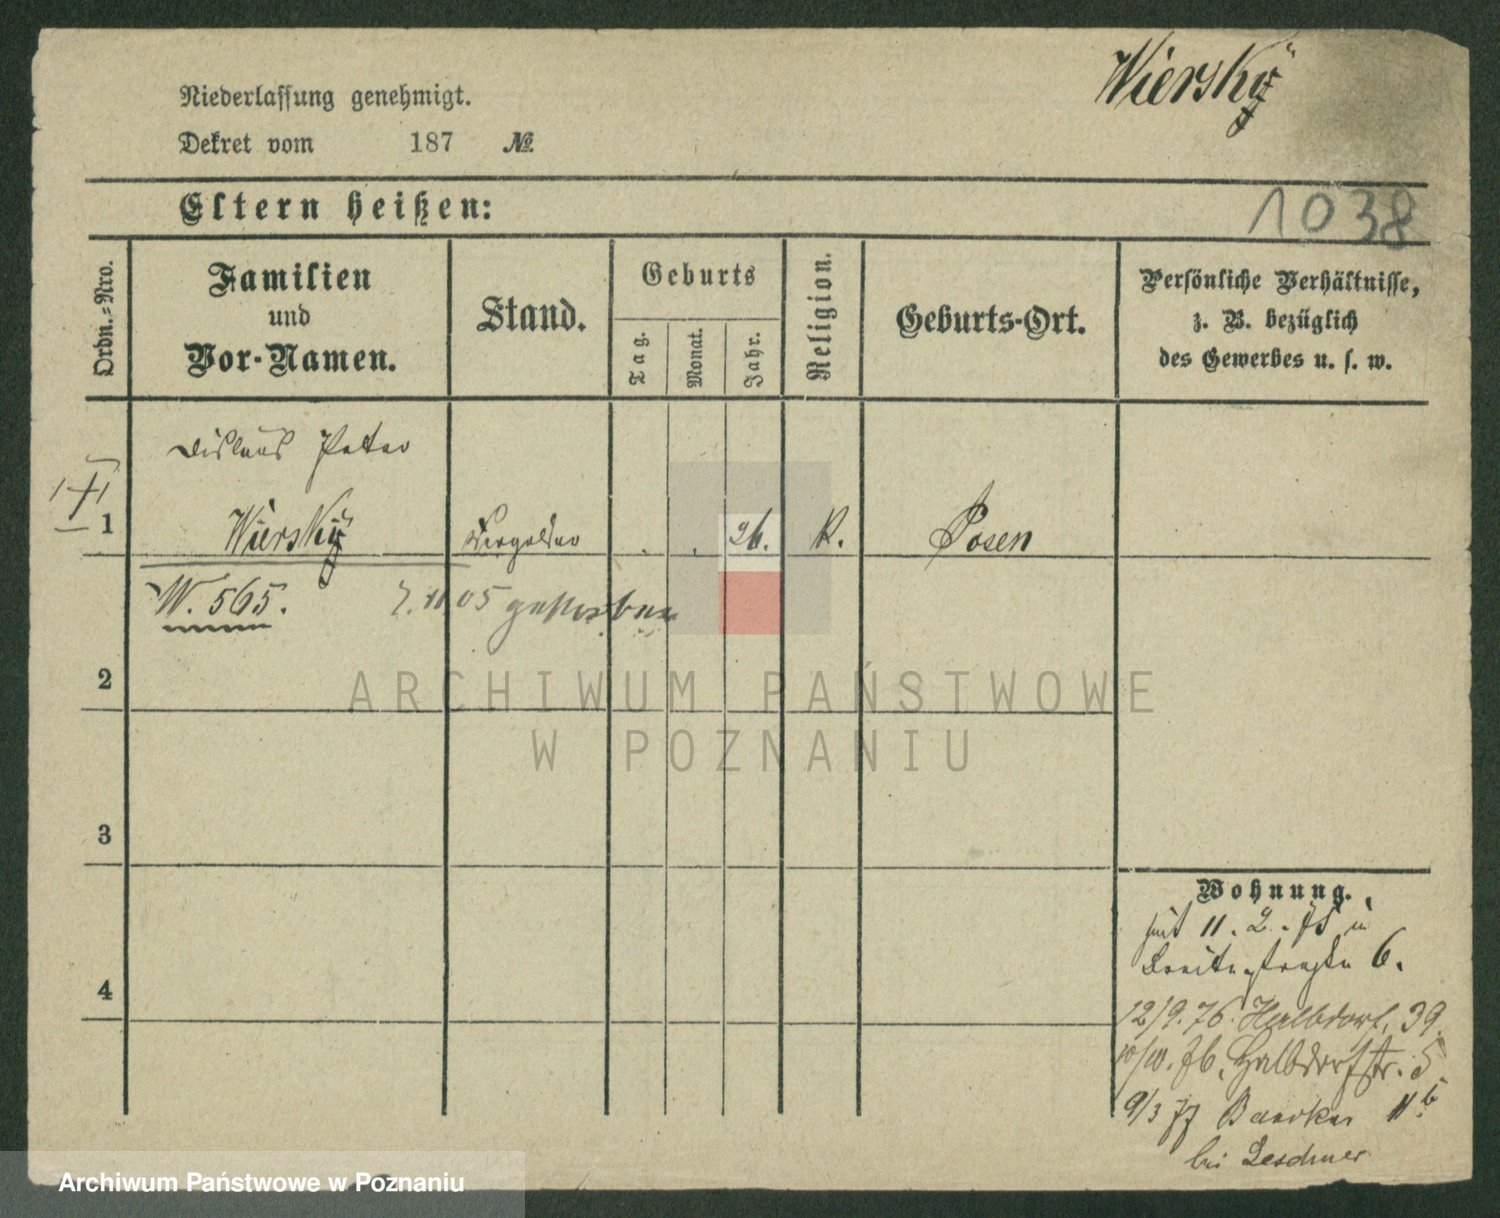 Wierskÿ
Niederlassung genehmigt.
Dekret vom 187 №
Eltern heißen:
1038
Ordn.-Nro.
Familien
und
Vor-Namen.
Stand.
Geburts
Tag.
Monat.
Jahr.
Religion.
Geburts-Ort.
Persönliche Verhältnisse,
z. B. bezüglich
des Gewerbes u. s. w.
Peter
1 Wierskÿ Vergolder 26. K. Posen
W. 565. 7.11 05 gestorben
2
3
4
Wohnung.
seit 11. 2. 75 in
Breitestraße 6.
12/9. 76. Halbdorf, 39.
10/10. 76. Halbdorfstr. 5
9/3 77
bei
ARCHIWUM PAŃSTWOWE
W POZNANIU
Archiwum Państwowe w Poznaniu